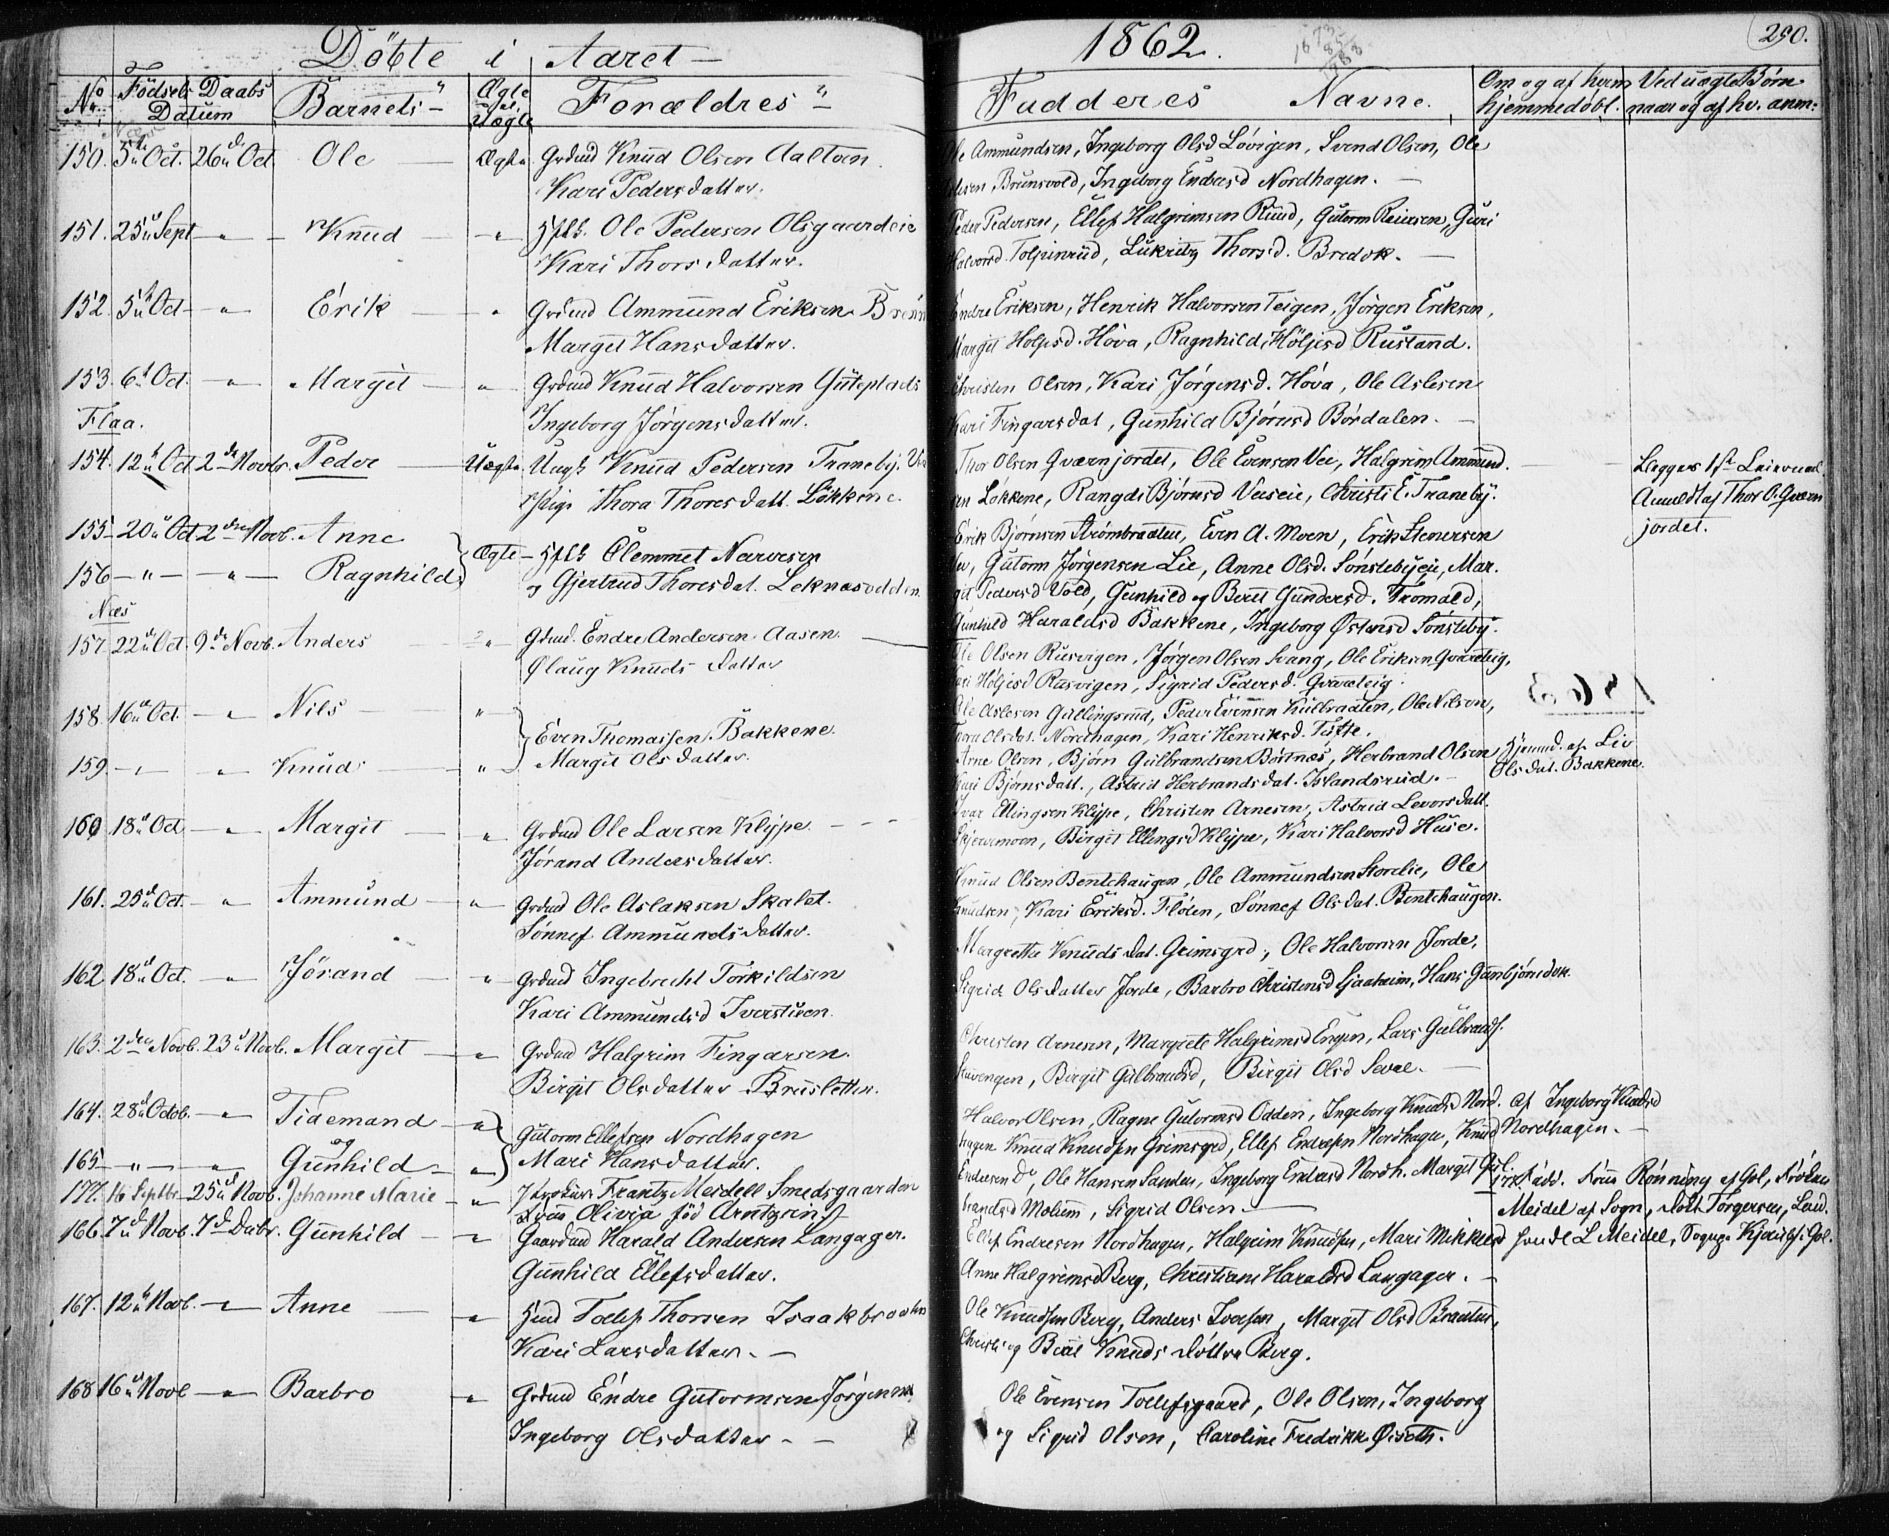 Döbte i Aaret 1862. 290.
No Födsels Daabs Datum Barnets Ægte el. Uægte Forældres
Fadderes Navne. Om og af hvem hjemmedöbt. Ved uægte Börn naar og af hv. anm:
150. 5 Oct. 26 Oct Ole Ægte Grdmd Knud Olsen
Kari Pedersdatter.
Ammundsen, Ingeborg Olsd Lövigen, Svend Olsen, Ole
Brunsvold, Ingeborg Endresd Nordhagen.
151. 25 Sept " Knud " Ole Pedersen Olsgaardeie
Kari Thorsdatter.
Peder Pedersen, Ellef Halgrimsen Ruud, Gutorm Reiersen, Guri
Halvorsd. Thorsd. Bredok.
152. 5 Oct " Erik " Grdmd Ammund Eriksen
Margit Hansdatter.
Endre Eriksen, Henrik Halvorsen Teigen, Jörgen Eriksen,
Margit Holjesd. Hova, Ragnhild Höljesd Rustand.
153. 6 Oct. " Margit " Grdmd Knud Halvorsen
Ingeborg Jörgensdatter.
Christen Olsen, Kari Jörgensd. Hóva, Ole Aslesen
Kari Fingarsdat, Gunhild Björnsd Bördalen.
Flaa.
154. 12 Oct 2den Novbr. Peder Uægte Ungk Knud Pedersen Traneby
Pige Thora Thoresdatt. Lökkene.
Thor Olsen Qværnjordet, Ole Evensen Vee, Halgrim Ammund-
sen Lokkene, Rangdi Björnsd Veseie, Christi E. Traneby.
Lægger 1ste Leiermaal
Anmeldt af Thor O. Qværn
jordet.
155 20 Oct 2den Novb. Anne
156 " " Ragnhild Ægte Clemmet Narvesen
og Gjertrud Thoresdat. Leknesodden
Erik Björnsen Strömbraaten, Even A. Moen, Erik Stenersen
Gutorm Jörgensen Lie, Anne Olsd. Sönstebyeie, Mar-
git Pedersd Vold, Gunhild og Berit Gundersd. Tromald,
Gunhild Haraldsd Bakkene, Ingeborg Östensd Sönsteby.
Næs
157. 22 Oct. 9de Novb. Anders " Grdmd. Endre Andersen Aasen
Olaug Knudsdatter
Ole Olsen Rusvigen, Jörgen Olsen Svang, Ole Eriksen Qværteig,
Höljesd Rasvigen, Sigrid Pedersd. Qværteig.
158. 16 Oct. " Nils "
159 " " Knud " Even Thomassen Bakkene
Margit Olsdatter.
Ole Aslesen Gullingsrud, Peder Evensen Kulbraaten, Ole Nilsen,
Olsdat. Nordhagen, Kari Henriksd. Tótte.
Arne Olsen, Björn Gulbrandsen Börtnes, Herbrand Olsen
Björnsdatt., Astrid Herbrandsdat. Islandsrud.
Hjemmd. af Liv
Olsdat. Bakkene.
160 18 Oct " Margit " Grdmd Ole Larsen Klype
Jörand Andersdatter.
Ivar Ellingsen Klype, Christen Arnesen, Astrid Levorsdatt.
Skjerumoen, Birgit Ellingsd Klype, Kari Halvorsd Huse.
161. 25 Oct. " Ammund " Grdmd Ole Aslaksen Skalet.
Sönnef Ammundsdatter.
Knud Olsen Bentehaugen, Ole Ammundsen Storelie, Ole
Knudsen, Kari Eriksd. Flöten, Sönnef Olsdat. Bentehaugen.
162. 18 Oct. " Jörand " Grdmd Ingebrecht Torkildsen
Kari Ammundsd Iverstuen.
Margrethe Knudsdat. Grimsgrd, Ole Halvorsen Jorde,
Sigrid Olsdatter Jorde, Barbro Christensd Sjaaheim, Hans
163. 2den Novb. 23 Novb. Margit " Grdmd Halgrim Fingarsen.
Birgit Olsdatter Brusletten.
Christen Arnesen, Margrete Halgrimsd Engen, Lars Gulbrands.
Stavengen, Birgit Gulbrandsd, Birgit Olsd Sevre.
164. 28 Octob. " Tidemand og
165 " " Gunhild " Gutorm Ellefsen Nordhagen
Mari Hansdatter.
Halvor Olsen, Ragne Gutormsd Odden, Ingeborg Knudsd Nord-
hagen Knud Knudsen Grimsgrd, Ellef Endresen Nordhagen, Knud
Endresen Do, Ole Hansen Sanden, Ingeborg Endresd Nordh. Margit Gul-
brandsd Molum, Sigrid Olsen.
Af Ingeborg Knudsd
Nordhagen.
177. 16 Septbr. 25 Novb. Johanne Marie " Frantz Meidell Smedsgaarden
Olivia föd Arntzen
Rönning af Gol, Fröken
Meidel af Sogn, Torgersen, Lend.
L Meidel, Gol.
166. 7 Novb. 7de Decbr. Gunhild " Gaardmd Harald Andersen Langager.
Gunhild Ellefsdatter.
Ellef Endresen Nordhagen, Halgrim Knudsen, Mari Mikkelsd
Anne Halgrimsd Berg, Christiane Haraldsd Langager.
167. 12 Novb. " Anne " Tollef Thorsen Isaakbraaten
Kari Larsdatter.
Ole Knudsen Berg, Anders Iversen, Margit Olsd Braaten,
Christi og Beril Knuds Döttre Berg.
168 16 Novb " Barbro " Grdmd Endre Gutormsen Jörgenrud
Ingeborg Olsdatter.
Ole Evensen Tollefsgaard, Ole Olsen, Ingeborg
og Sigrid Olsen, Caroline Fredrikk. Öiseth.